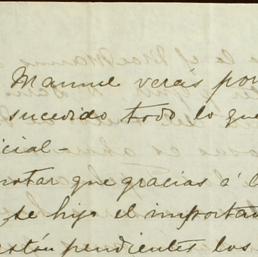 Manuel verás por
sucedido todo lo que
cial-
notar que gracias á l
se hijo el importa
están pendientes los